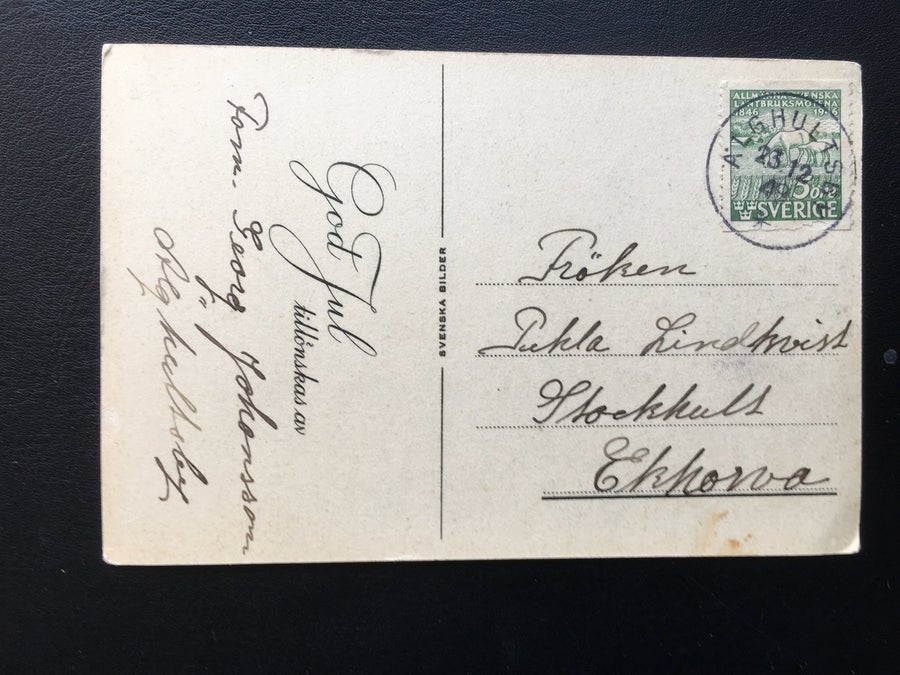 God Jul
tillönskas av
Fam. Georg Johansson
Älghultsby
SVENSKA BILDER
ALLMÄNNA SVENSKA
LANTBRUKSMÖTENA
1846 1946
5 ÖRE
SVERIGE
ÄLGHULTSBY
23.12
Fröken
Tekla Lindkvist
Stockhult
Ekhorva